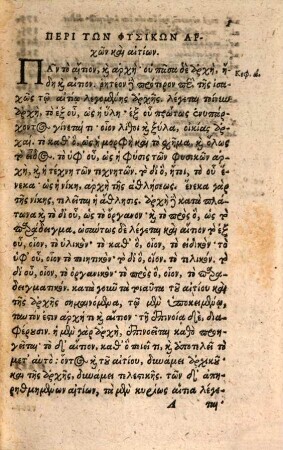 ΠΕΡΙ ΤΩΝ ΦΥΣΙΚΩΝ ΑΡ-
χῶν καὶ αἰτίων.
ΠΑν τὸ αἴτιον, κ̀ ἀρχή· οὐ πᾶσα δὲ ἀρχή, ἤ- Κεφ. α.
δη κ̀ αἴτιον. ῥητέον πρότερον τῆς
τῷ αἰτίῳ λεγομένης ἀρχῆς. λέγεται τοίνυν
ἀρχή, τὸ ἐξ οὗ, ὡς ἡ ὕλη· ἐξ οὗ πρώτως ἐνυπάρ-
χοντος γίνεταί τι οἷον λίθοι κ̀ ξύλα, οἰκίας ἀρ-
χαί. τὸ καθ' ὃ, ὡς ἡ μορφὴ καὶ τὸ σχῆμα, κ̀ ὅλως
τὸ εἶδος. τὸ ὑφ' οὗ, ὡς ἡ φύσις τῶν φυσικῶν ἀρ-
χή, κ̀ ἡ τέχνη τῶν τεχνητῶν. τὸ δι' ὃ, ἤτοι, τὸ οὗ
ἕνεκα· ὡς ἡ νίκη, ἀρχὴ τῆς ἀθλήσεως. ἕνεκα γὰρ
τῆς νίκης, τελεῖται ἡ ἄθλησις. ἀρχὴ κ̀ κατὰ πλά-
τωνα κ̀ τὸ δι' οὗ, ὡς τὸ ὄργανον· κ̀ τὸ πρὸς ὃ, ὡς τὸ
παράδειγμα. ὡσαύτως δὲ λέγεται καὶ αἴτιον τὸ ἐξ
οὗ, οἷον, τὸ ὑλικόν· τὸ καθ' ὃ, οἷον, τὸ εἰδικόν· τὸ
ὑφ' οὗ, οἷον, τὸ ποιητικόν· τὸ δι' ὃ, οἷον, τὸ τελικόν. τὸ
δι' οὗ, οἷον, τὸ ὀργανικόν· τὸ πρὸς ὃ, οἷον, τὸ παρα-
δειγματικόν. τοῦ αἰτίου καὶ
τῆς ἀρχῆς σημαινόμενα, τῷ μὲν ὑποκειμένῳ,
ταυτόν ἐστιν ἀρχή τι κ̀ αἴτιον· τῇ ἐπινοίᾳ δὲ, δια-
φέρουσιν. ἡ μὲν γὰρ ἀρχή, ἐπινοεῖται καθὸ προ-
ηγεῖται· τὸ δ' αἴτιον, καθ' ὃ ποιεῖ τι, κ̀ ἀποτελεῖ τὸ
μετ' αὐτό· ὄντος κ̀ τοῦ αἰτίου, δυνάμει ἀρχικοῦ·
καὶ τῆς ἀρχῆς, δυνάμει τελεστικῆς. τῶν δ' ἀπη-
ριθμημένων αἰτίων, τὰ μὲν κυρίως αἴτια λέγε-
Α ται